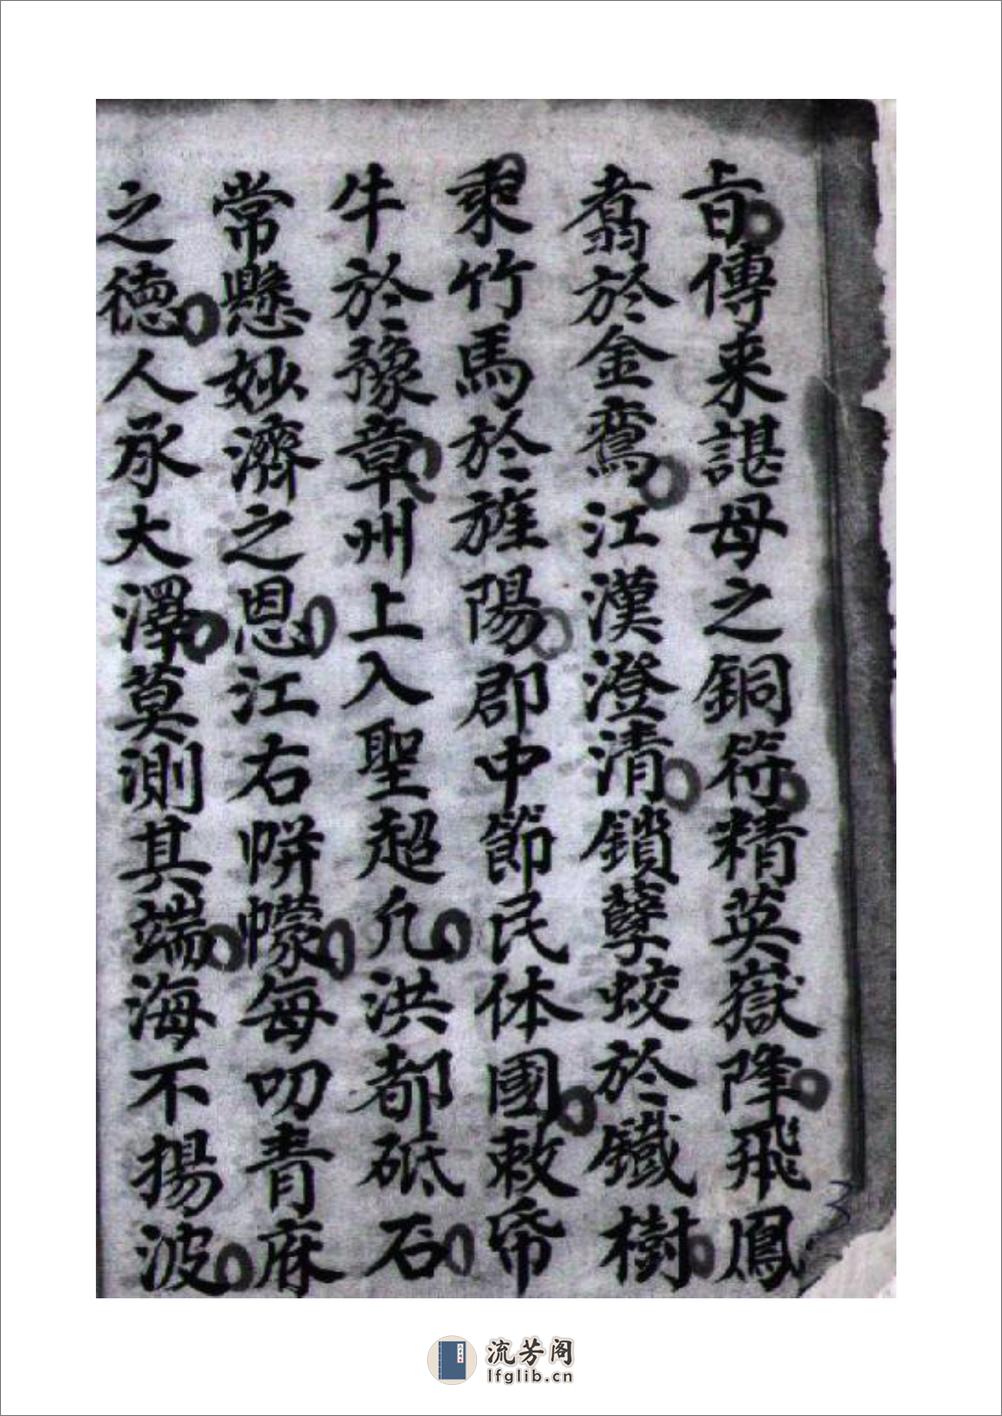 旨傳来諶母之銅符精英嶽降飛鳳
翥於金鸞江漢澄清鎖孽蛟於鐵樹
乘竹馬於旌陽郡中節民体國敕帝
牛於豫章州上入聖超凢洪都砥石
常懸妙濟之恩江右帡幪每叨青庥
之德人承大澤莫測其端海不揚波
3
流芳阁
lfglib.cn